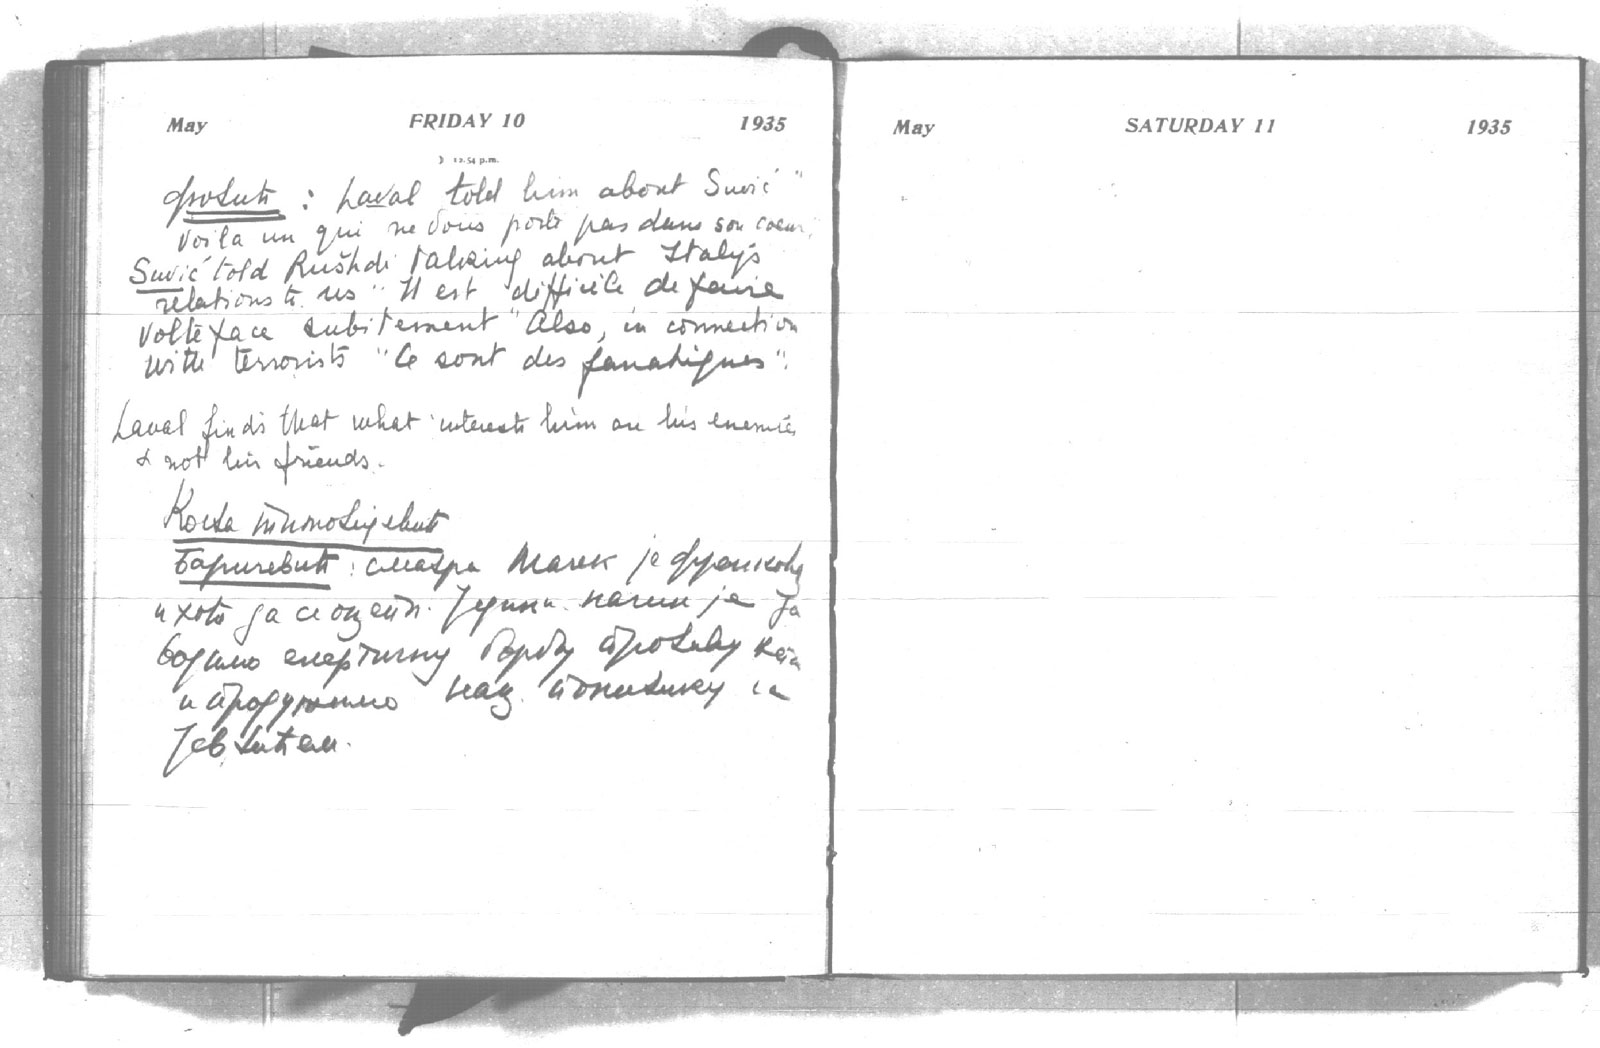 May FRIDAY 10 1935
12.54 p.m.
: Laval told him about Suvić "
Voila un qui ne vous porte pas dans son coeur
Suvić told Rušhdi talking about Italy's
relations to us "Il est difficile de faire
volte face subitement" Also, in connection
with terrorists "Ce sont des fanatiques".
Laval finds that what interests him are his enemies
& not his friends.
Коста
: сматра Мачек је
и хоће да се Једини начин је да
водимо енергичну борбу против
и продужимо са
Јевтићем.
May SATURDAY 11 1935